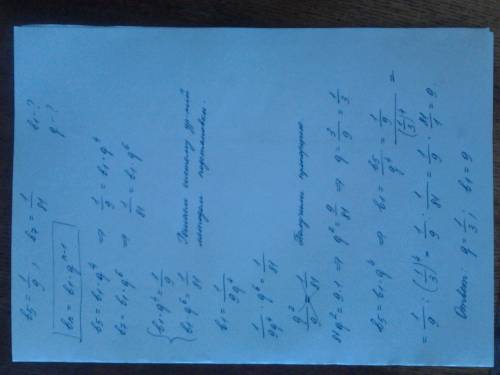 b₅ = 1/9 ; b₇ = 1/81   b₁ - ?
q - ?
bₙ = b₁·qⁿ⁻¹
b₅ = b₁·q⁴ ⇒ 1/9 = b₁·q⁴
b₇ = b₁·q⁶ ⇒ 1/81 = b₁·q⁶
{ b₁·q⁴ = 1/9   Решаем систему ур-ний
{ b₁·q⁶ = 1/81   методом подстановки.
b₁ = 1/9q⁴
1/9q⁴ · q⁶ = 1/81
q²/9 = 1/81   Получили пропорцию.
81q² = 9·1 ⇒ q² = 9/81 ⇒ q = 3/9 = 1/3
b₅ = b₁·q⁴ ⇒ b₁ = b₅/q⁴ = 1/9/(1/3)⁴ =
= 1/9 : (1/3)⁴ = 1/9 : 1/81 = 1/9 · 81/1 = 9.
Ответ: q = 1/3; b₁ = 9